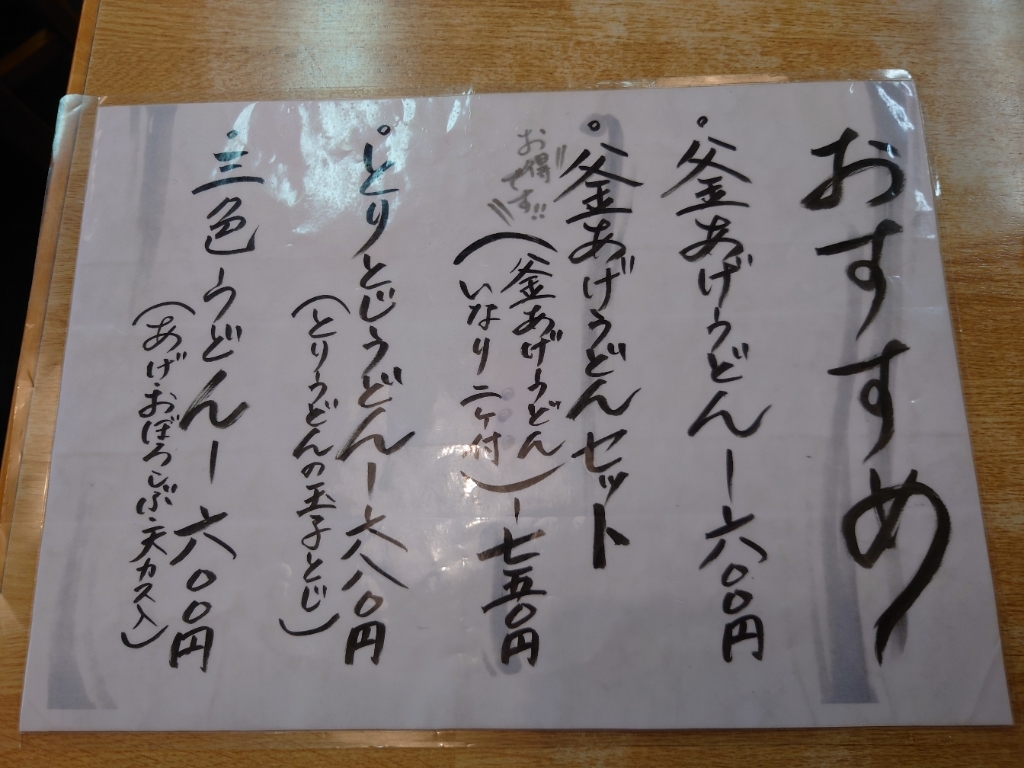 おすすめ
・釜あげうどん ー 六〇〇円
・釜あげうどんセット
お得
です!!
(釜あげうどん
いなり二ヶ付) ー 七五〇円
・とりとじうどん ー 六八〇円
(とりうどんの玉子とじ)
・三色うどん ー 六〇〇円
(あげ・おぼろこぶ・天カス入)